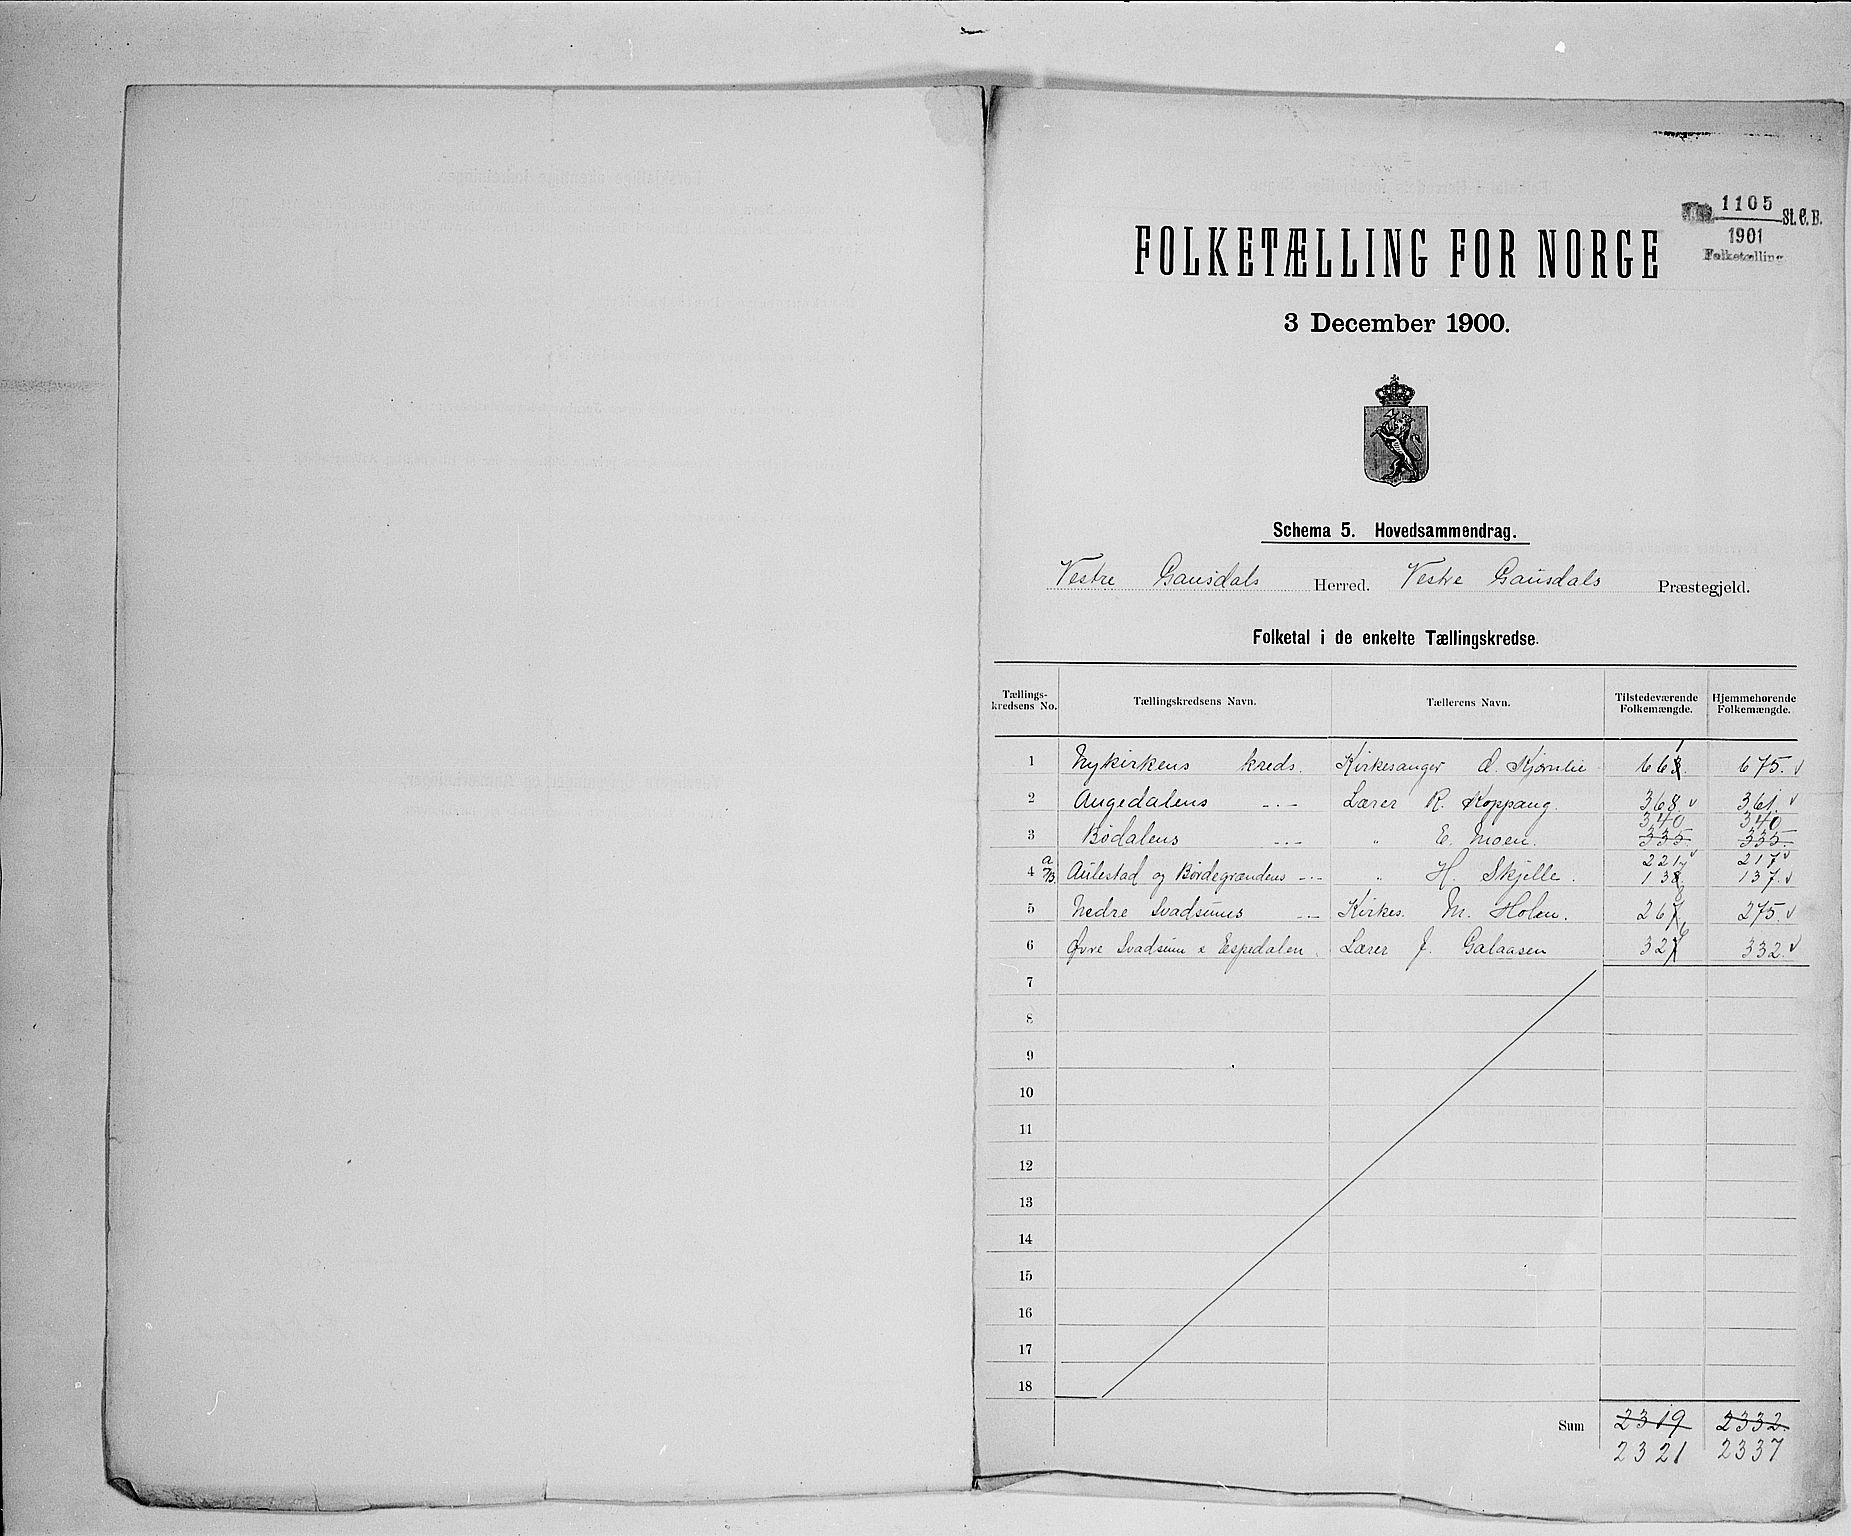 1105
St. C. B.
1901
Folketælling
FOLKETÆLLING FOR NORGE
3 December 1900.
Schema 5. Hovedsammendrag.
Vestre Gausdals Herred. Vestre Gausdals Præstegjeld.
Folketal i de enkelte Tællingskredse.
Tællings-kredsens No. Tællingskredsens Navn. Tællerens Navn. Tilstedeværende Folkemængde. Hjemmehørende Folkemængde.
1 Nykirkens kreds. Kirkesanger O. Kjørnlie 661 675.
2 Augedalens -"- Lærer R. Koppang. 368 361.
340 340
3 Bødalens -"- " E. Moen. 335 335.
a 221 217
4 /B. Aulestad og Børdegrændens -"- " H. Skjelle. 138. 137.
5 Nedre Svadsums -"- Kirkes. M. Holen. 267 275.
6 Øvre Svadsum & Espedalen. Lærer J. Galaasen 326 332.
7
8
9
10
11
12
13
14
15
16
17
18
Sum 2319 2332.
2321 2337